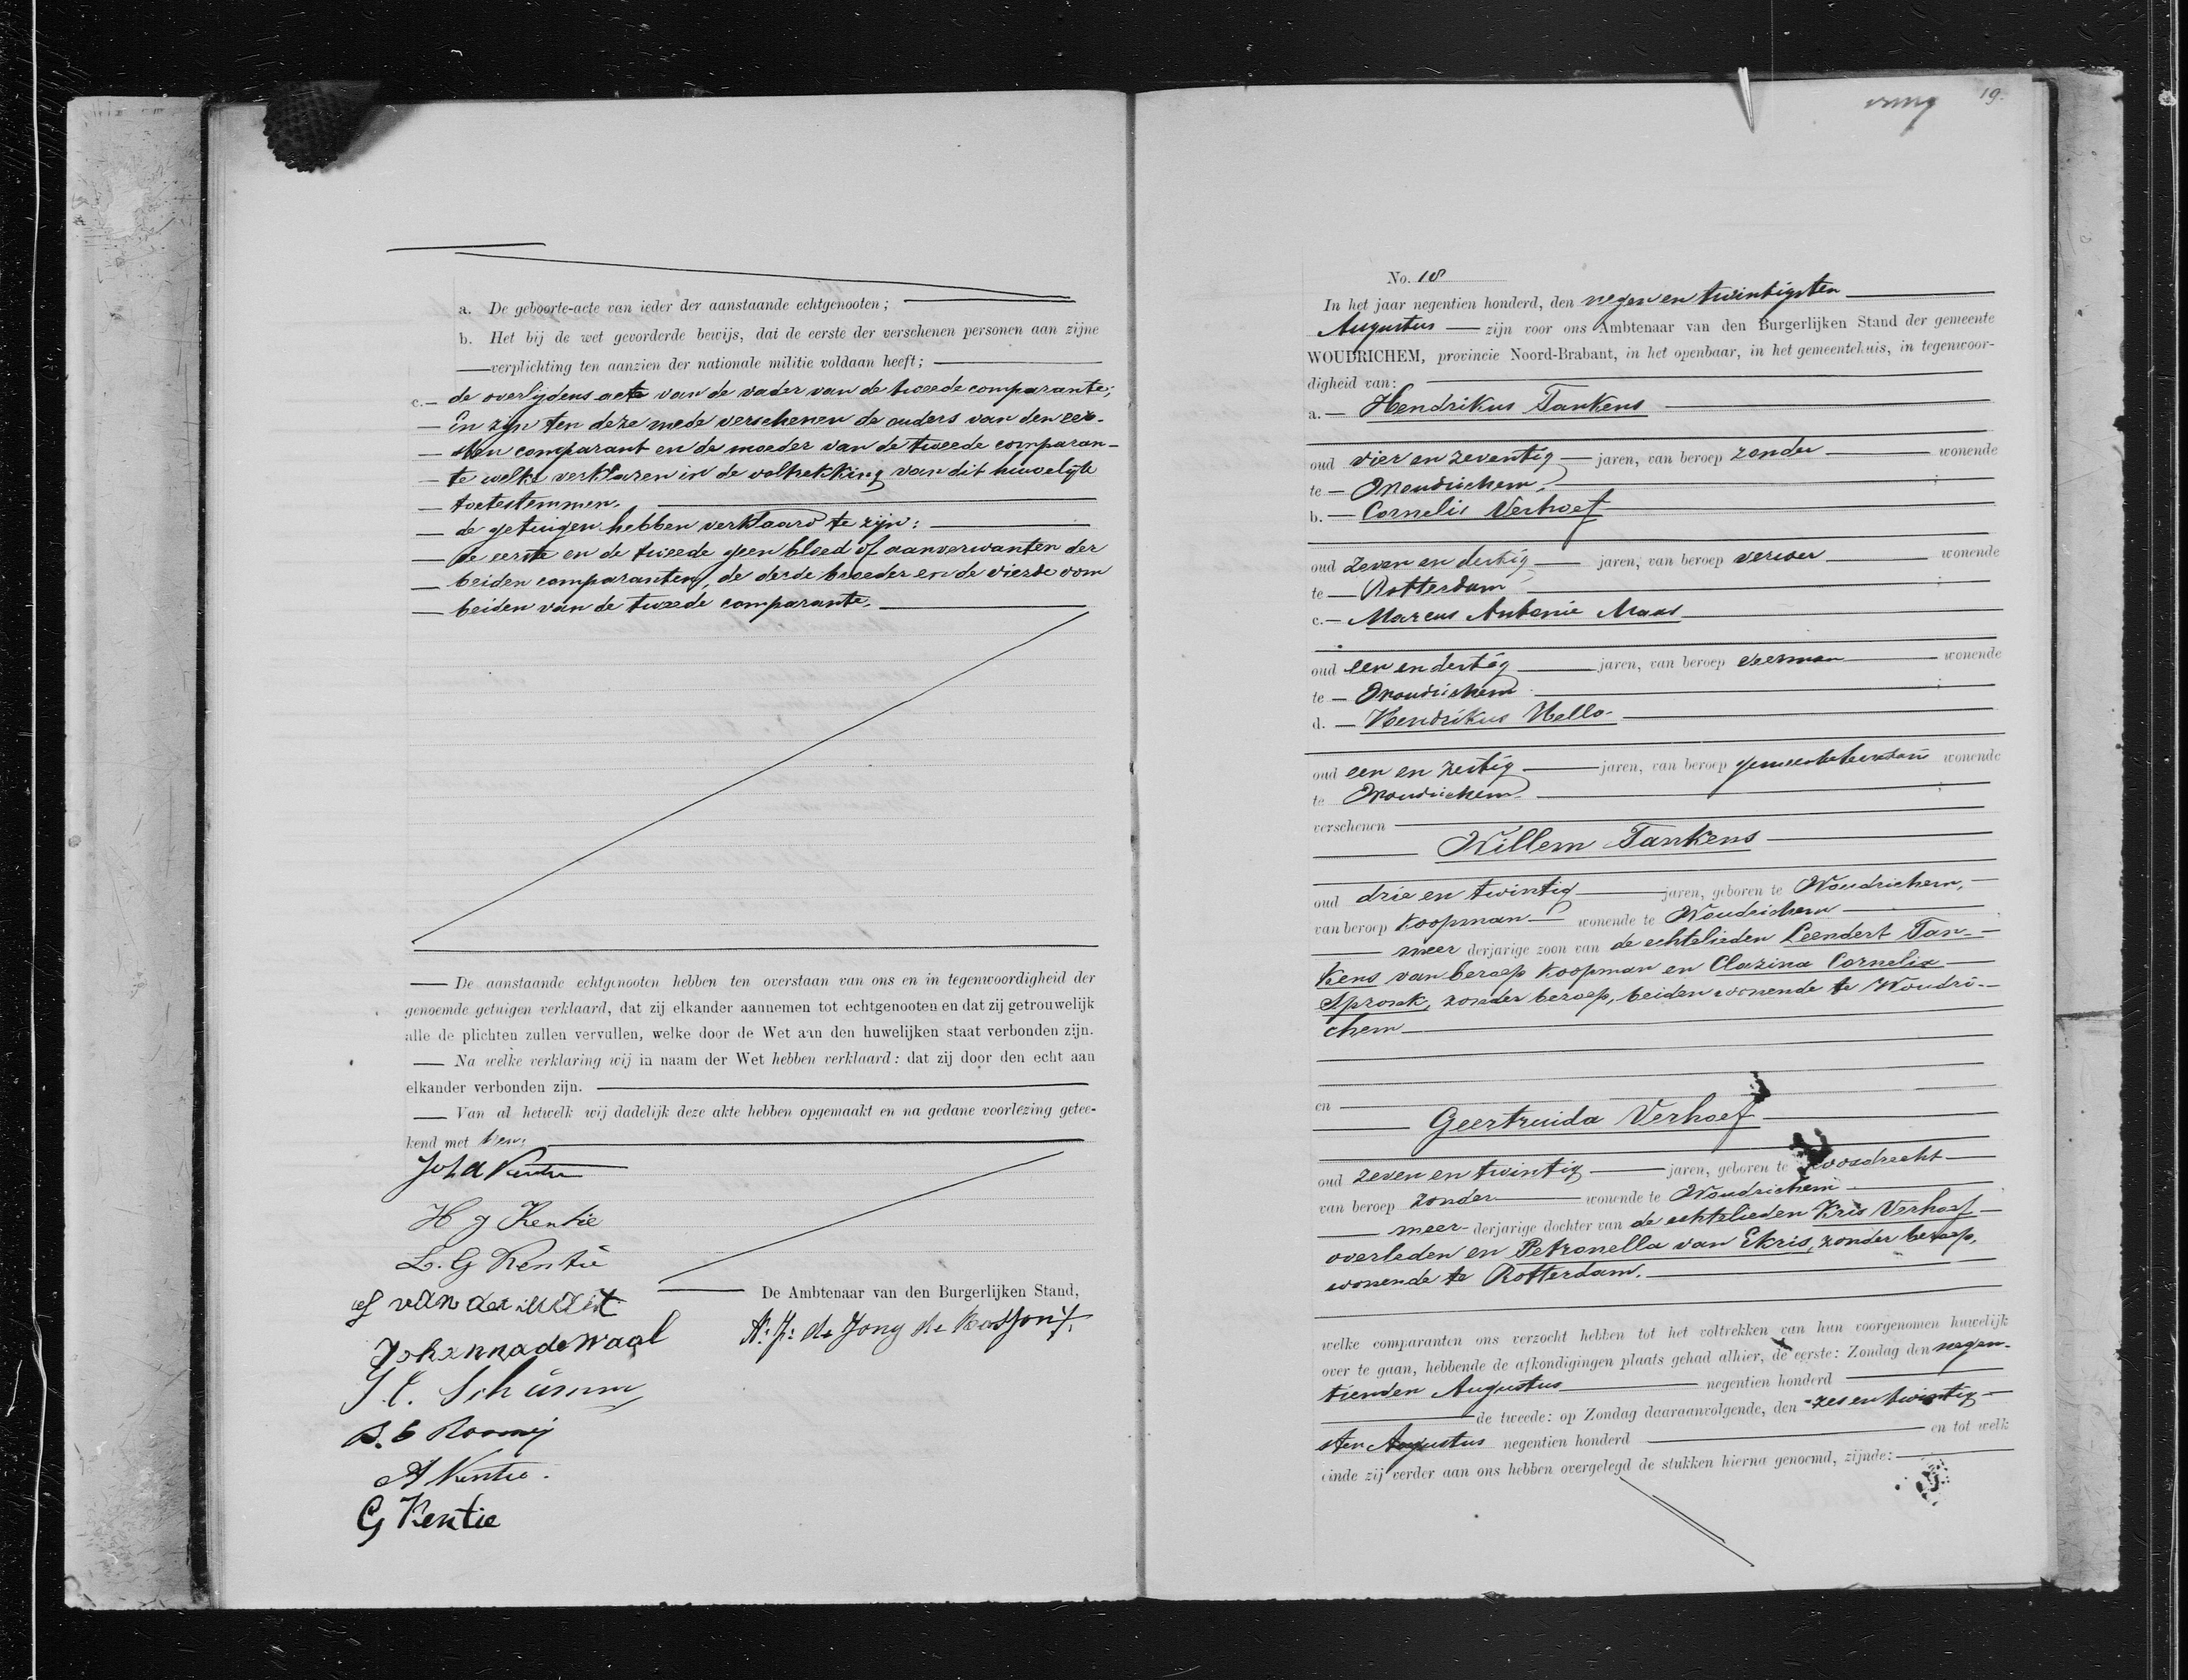 a. De geboorte-acte van ieder der aanstaande echtgenooten;
b. Het bij de wet gevorderde bewijs, dat de eerste der verschenen personen aan zijne
verplichting ten aanzien der nationale militie voldaan heeft;
c. de overlijdens acte van de vader van de tweede comparante;
En zijn ten deze mede verschenen de ouders van den eer-
sten comparant en de moeder van de tweede comparan-
te welke verklaren in de voltrekking van dit huwelijk
toetestemmen.
de getuigen hebben verklaard te zijn:
de eerste en de tweede geen bloed of aanverwanten der
beiden comparanten, de derde broeder en de vierde oom
beiden van de tweede comparante.
De aanstaande echtgenooten hebben ten overstaan van ons en in tegenwoordigheid der
genoemde getuigen verklaard, dat zij elkander aannemen tot echtgenooten en dat zij getrouwelijk
alle de plichten zullen vervullen, welke door de Wet aan den huwelijken staat verbonden zijn.
Na welke verklaring wij in naam der Wet hebben verklaard: dat zij door den echt aan
elkander verbonden zijn.
Van al hetwelk wij dadelijk deze akte hebben opgemaakt en na gedane voorlezing getee-
kend met hen.
Joh A Kentie
H g Kentie
L. G Kentie
van der
Johanna de Waal
Schümm
A Kentie.
G Kentie
De Ambtenaar van den Burgerlijken Stand,
de Jong de
19.
No. 18
In het jaar negentien honderd, den negen en twintigsten
Augustus zijn voor ons Ambtenaar van den Burgerlijken Stand der gemeente
WOUDRICHEM, provincie Noord-Brabant, in het openbaar, in het gemeentehuis, in tegenwoor-
digheid van:
a. Hendrikus Tankens
oud vier en zeventig jaren, van beroep zonder wonende
te Woudrichem,
b. Cornelis Verhoef
oud zeven en dertig jaren, van beroep verver wonende
te Rotterdam
c. Marcus Antonie Maas
oud een en dertig jaren, van beroep veerman wonende
te Woudrichem
d. Hendrikus Uello
oud een en zestig jaren, van beroep gemeentebeambte wonende
te Woudrichem
verschenen
Willem Tankens
oud drie en twintig jaren, geboren te Woudrichem,
van beroep koopman wonende te Woudrichem
meer derjarige zoon van de echtelieden Leendert Tan-
kens van beroep koopman en Clazina Cornelia
Spronk, zonder beroep, beiden wonende te Woudri-
chem
en
Geertruida Verhoef
oud zeven en twintig jaren, geboren te
van beroep zonder wonende te Woudrichem
meer- derjarige dochter van de echtelieden Kris Verhoef
overleden en Petronella van Ekris, zonder beroep,
wonende te Rotterdam.
welke comparanten ons verzocht hebben tot het voltrekken van hun voorgenomen huwelijk
over te gaan, hebbende de afkondigingen plaats gehad alhier, de eerste: Zondag den negen-
tienden Augustus negentien honderd
de tweede: op Zondag daaraanvolgende, den zes en twintig-
sten Augustus negentien honderd en tot welk
einde zij verder aan ons hebben overgelegd de stukken hierna genoemd, zijnde: